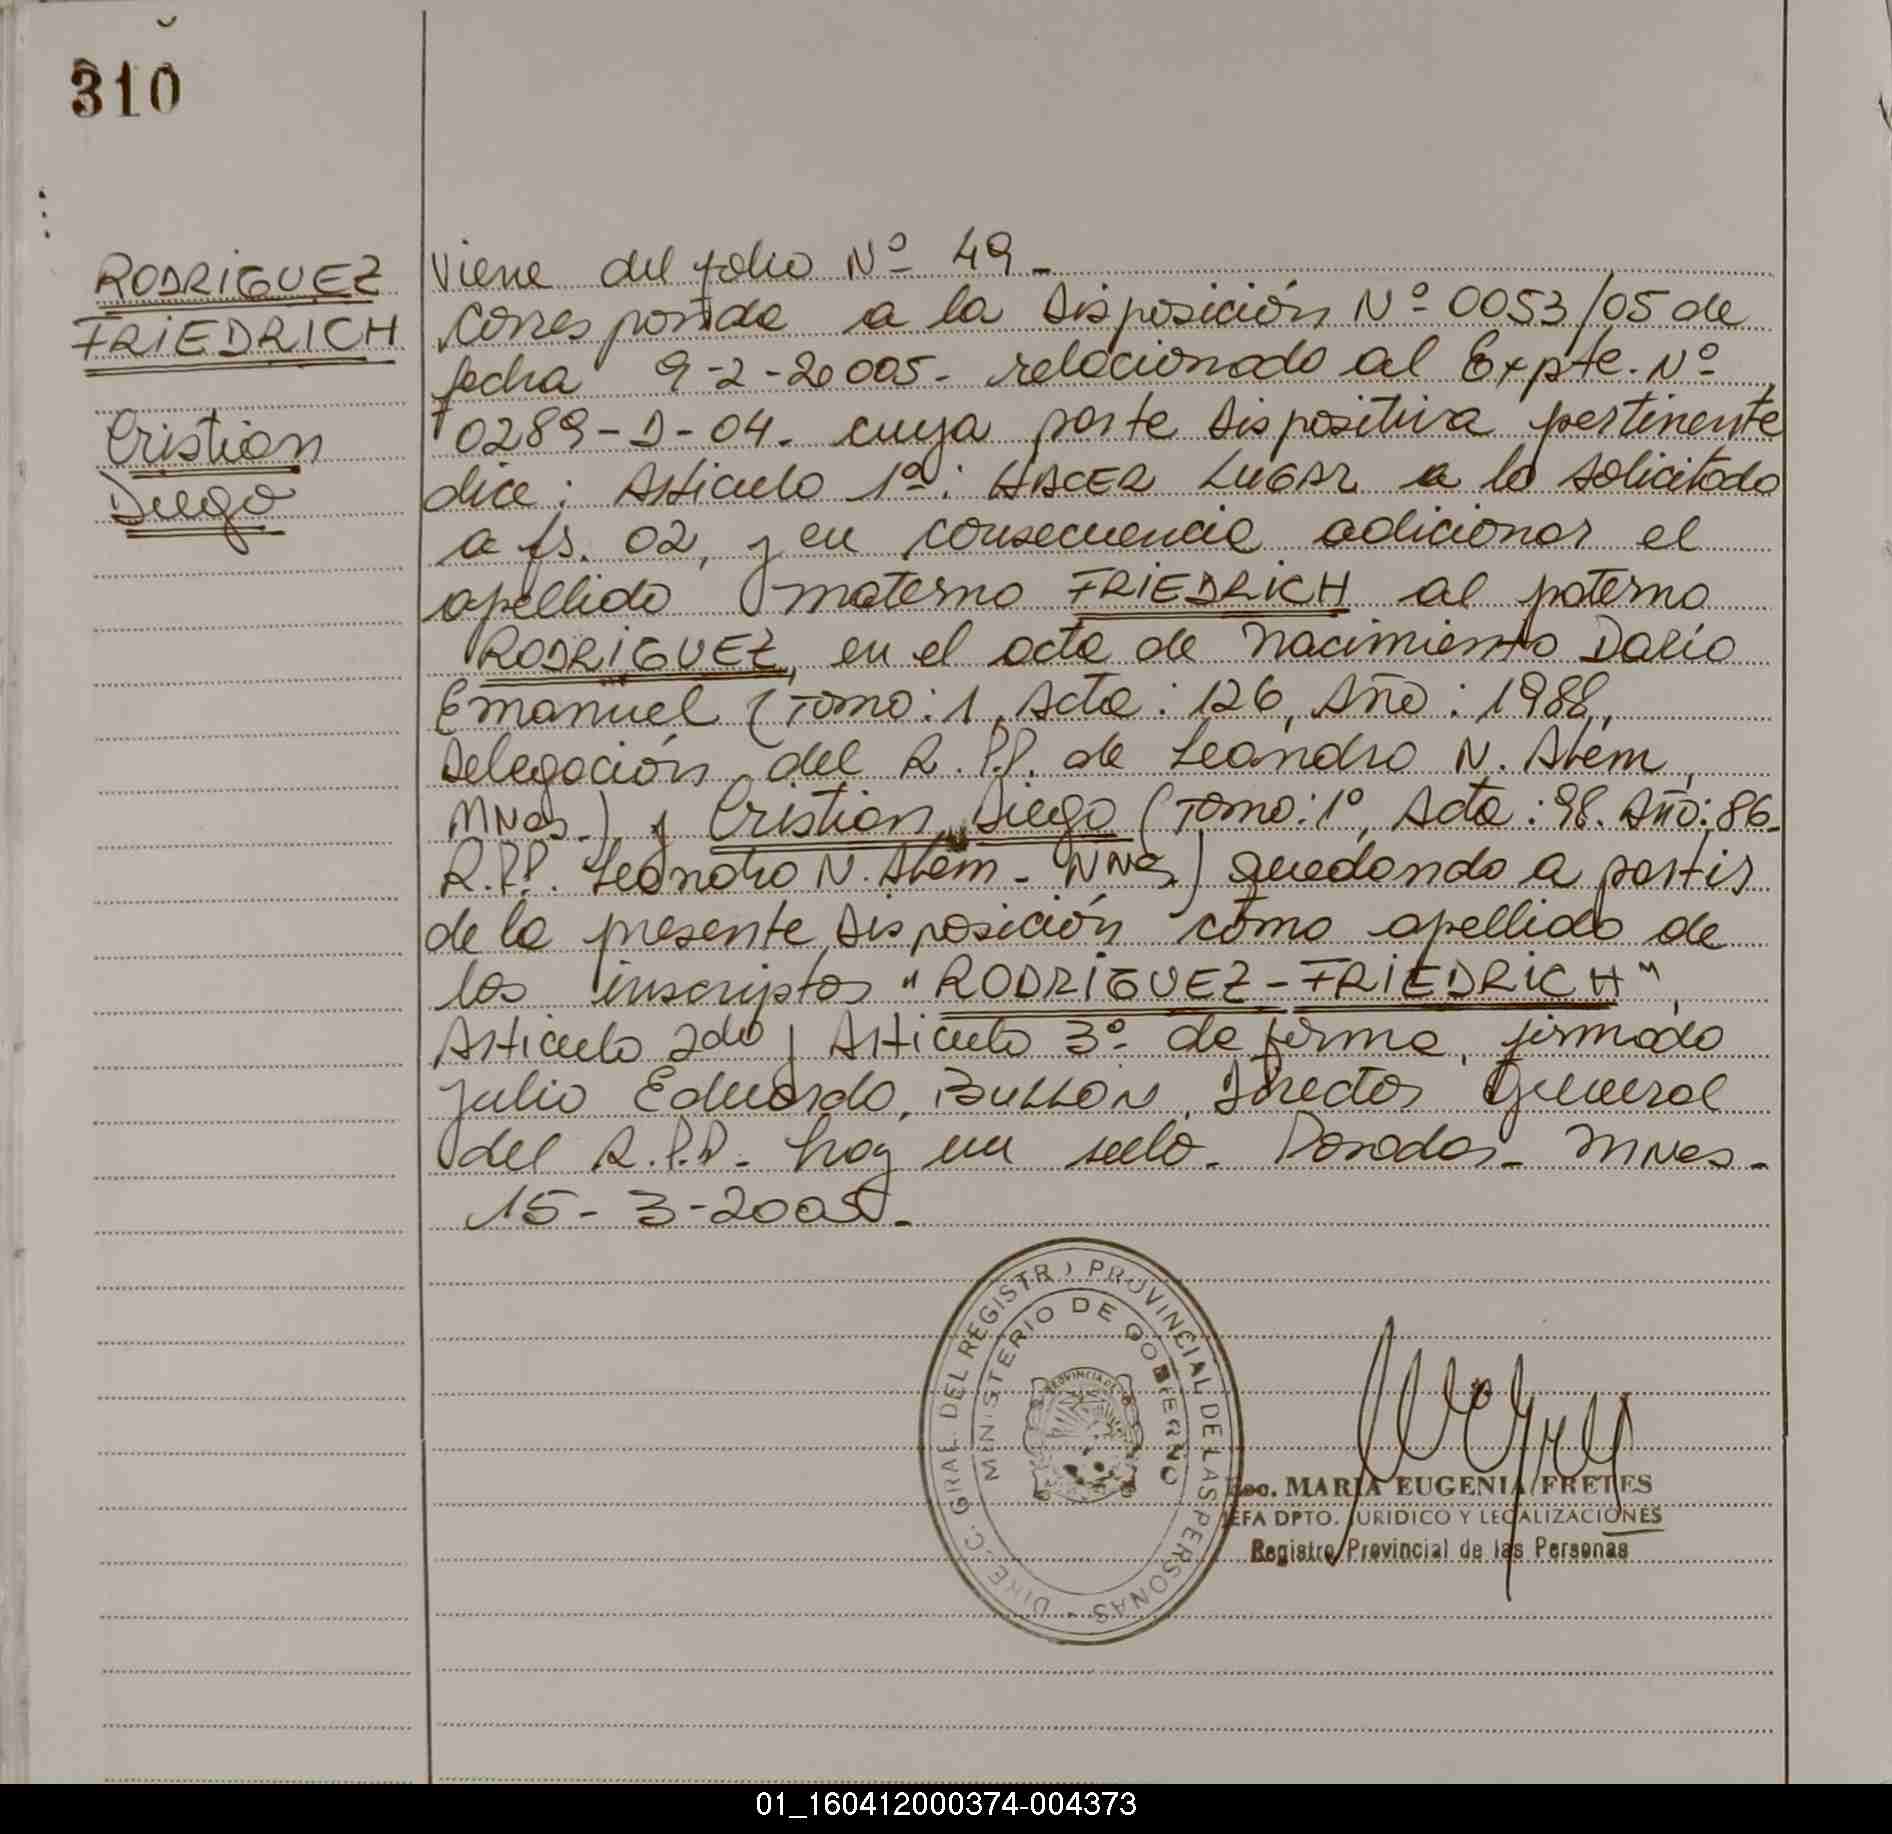 310
RODRIGUEZ
FRIEDRICH
Cristian
Diego
Viene del folio Nº 49-
Corresponde a la Disposición Nº 0053/05 de
fecha 9-2-20005- relacionado al Expte. Nº
0289-D-04. cuya parte dispositiva pertinente
dice: Articulo 1º: HACER LUGAR a lo solicitado
a fs. 02, y en consecuencia adicionar el
apellido materno FRIEDRICH al paterno
RODRIGUEZ, en el acta de nacimiento Dario
Emanuel (Tomo: 1, Acta: 126, Año: 1988,
Delegación del R.P.P. de Leandro N. Alem,
MNes.) y Cristian Diego (Tomo: 1º, Acta: 98. Año: 86-
R.P.P. Leandro N. Alem - MNes.) quedando a partir
de la presente Disposición como apellido de
los inscriptos "RODRIGUEZ-FRIEDRICH",
Articulo 2do y Articulo 3º- de forma, firmado
Julio Eduardo, BULLON, Director General
del R.P.P.- hay un sello- Posadas- MNes-
15-3-2005.-
DIRECC. GRAL. DEL REGISTRO PROVINCIAL DE LAS PERSONAS -
MINISTERIO DE GOBIERNO
PROVINCIA DE
Esc. MARIA EUGENIA FRETES
JEFA DPTO. JURIDICO Y LEGALIZACIONES
Registro Provincial de las Personas
01_160412000374-004373